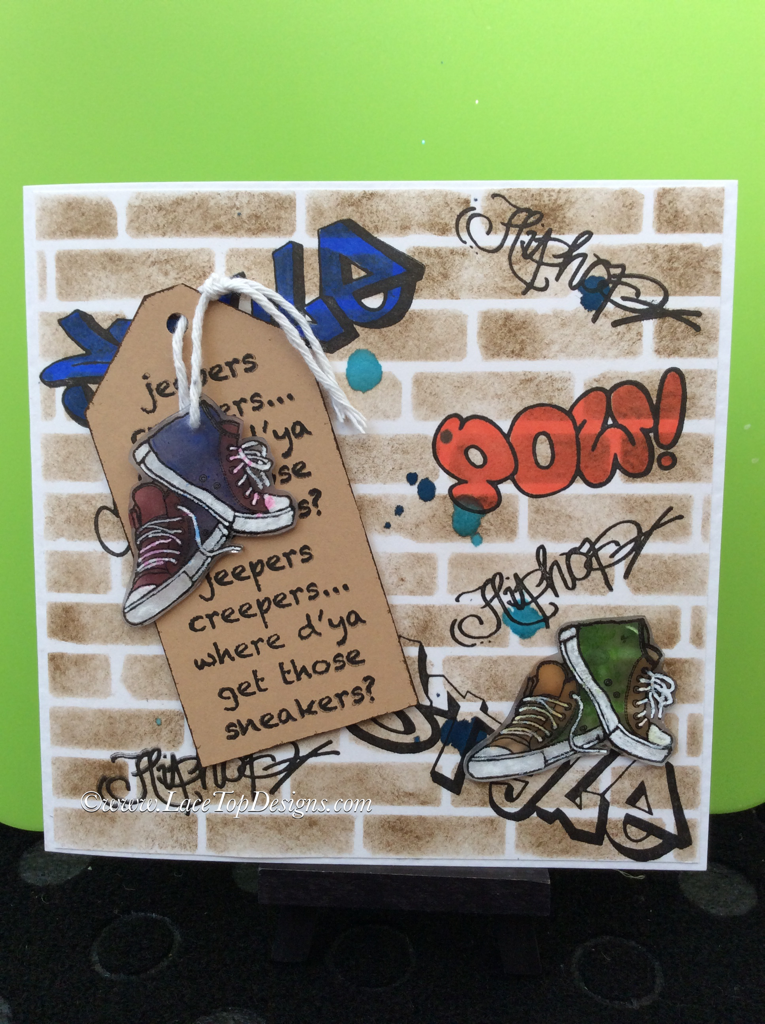 Hiphop
jeepers
creepers...
d'ya
POW!
jeepers
creepers...
where d'ya
get those
sneakers?
Hiphop
STYLE
Hiphop
©www.LaceTopDesigns.com